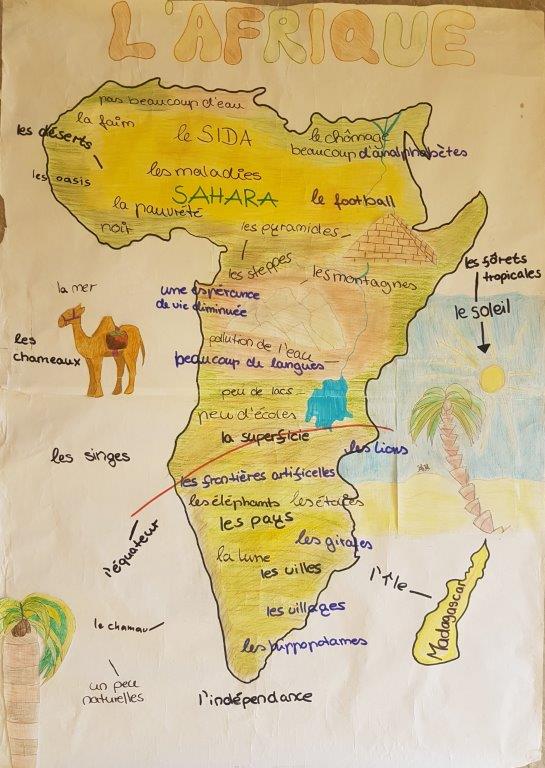 L'AFRIQUE
pas beaucoup d'eau
la faim
le SIDA
le chômage
les déserts
beaucoup d'analphabètes
les maladies
les oasis
SAHARA
le football
la pauvreté
noir
les pyramides
les forêts
tropicales
les steppes
les montagnes
la mer
une espérance
de vie diminuée
le soleil
les
chameaux
pollution de l'eau
beaucoup de langues
peu de lacs
peu d'écoles
la superficie
les lions
les singes
les frontières artificelles
les éléphants
les étoiles
les pays
les girafes
l'équateur
la lune
les villes
l'île
Madagascar
les villages
le chamau
les hippopotames
un peu
naturelles
l'indépendance